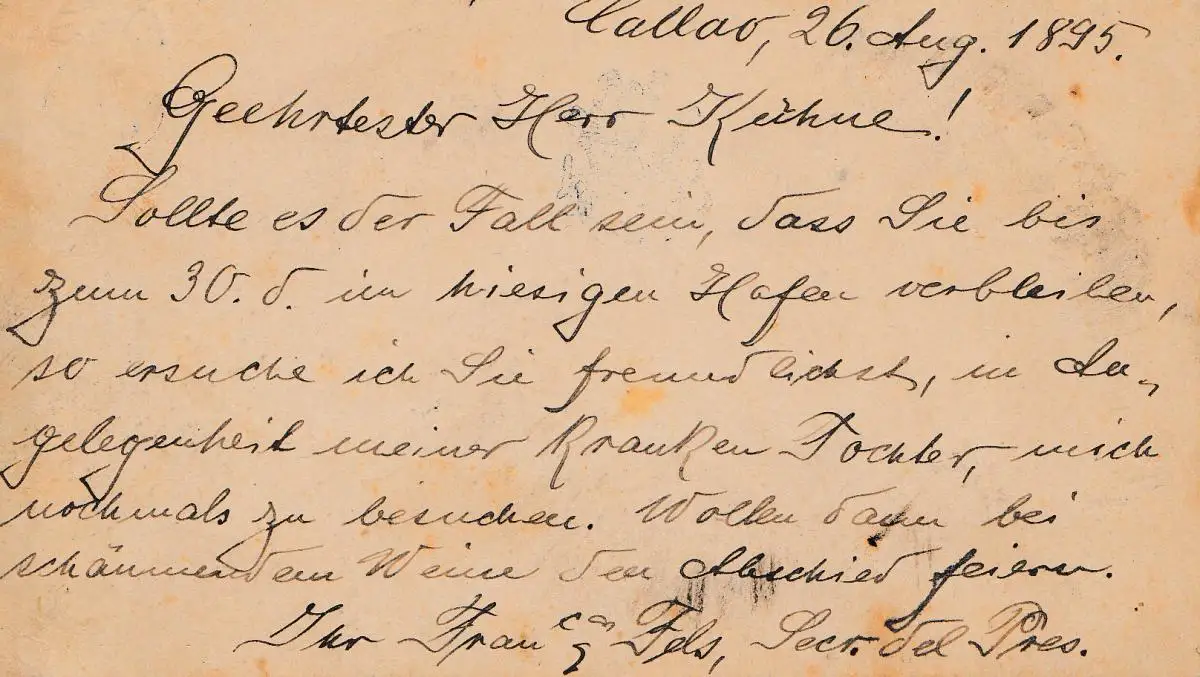 Callao, 26. Aug. 1895.
Geehrtester Herr Kühne!
Sollte es der Fall sein, dass Sie bis
zum 30. d. im hiesigen Hafen verbleiben,
so ersuche ich Sie freundlichst, in An-
gelegenheit meiner kranken Tochter, mich
nochmals zu besuchen. Wollen dann bei
schäumendem Weine den Abschied feiern.
Ihr Fels, Secr. del Pres.